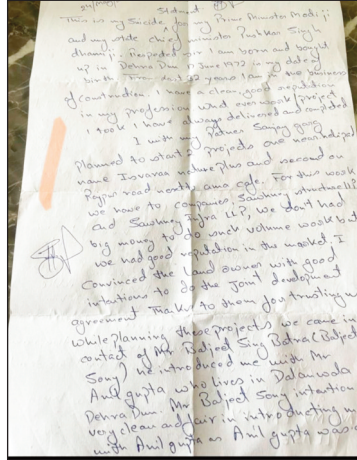 24/5/2024 Statement
This is my Suicide for my Prime Minister Modi ji
and my state chief Minister Pushkar Singh
dhami ji. Respected sir I am born and bought
up in Dehra Dun 11 June 1972 is my date of
birth from last 32 years I am in the business
of construction I have a clean, good reputation
in my profession what ever work / project
I took I have always delivered and completed
I with my Patner Sanjay garg
planned to start 2 projects one near helipad
name Isvaran nature plus and second on
road north cafe. For this work
we have to companies; Sawhney structurall
and Sawhney Infra LLP, we don't had
big money to do such volume work but
we had good reputation in the market. I
Convinced the land owner with good
intentions to do the Joint development
agreement Thanks to them for trusting me
while planning these projects we came in
contact of Mr Baljeet Sing Batra (Baljeet
Sony) he introduced me with Mr
Anil gupta who lives in Dalanwala
Dehra Dun. Mr Baljeet Sony intention
very clean and fair in introducting me
with Anil gupta as Anil gupta was a